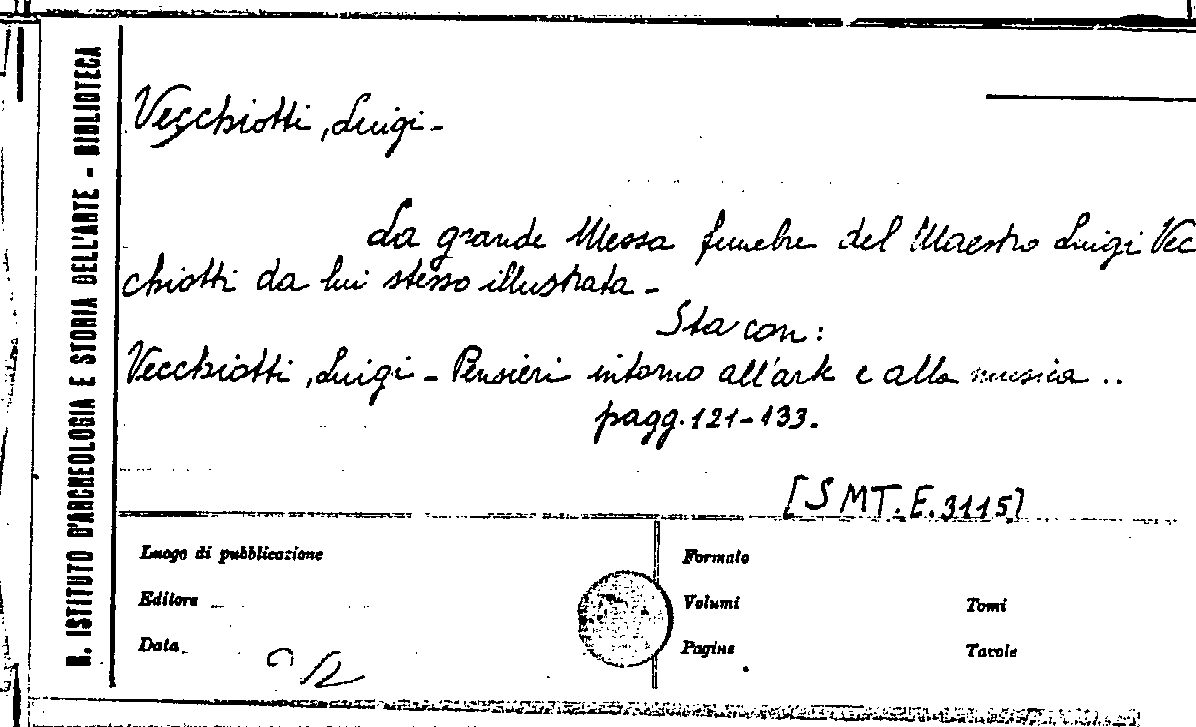 R. ISTITUTO D'ARCHEOLOGIA E STORIA DELL'ARTE - BIBLIOTECA
Vecchiotti, Luigi -
La grande Messa funebre del Maestro Luigi Vec
chiotti da lui stesso illustrata -
Sta con:
Vecchiotti, Luigi - Pensieri intorno all'arte e alla musica ..
pagg. 121-133.
[S MT. E. 3115]
Luogo di pubblicazione
Formato
Editore
Volumi
Tomi
Data
Pagine
Tavole